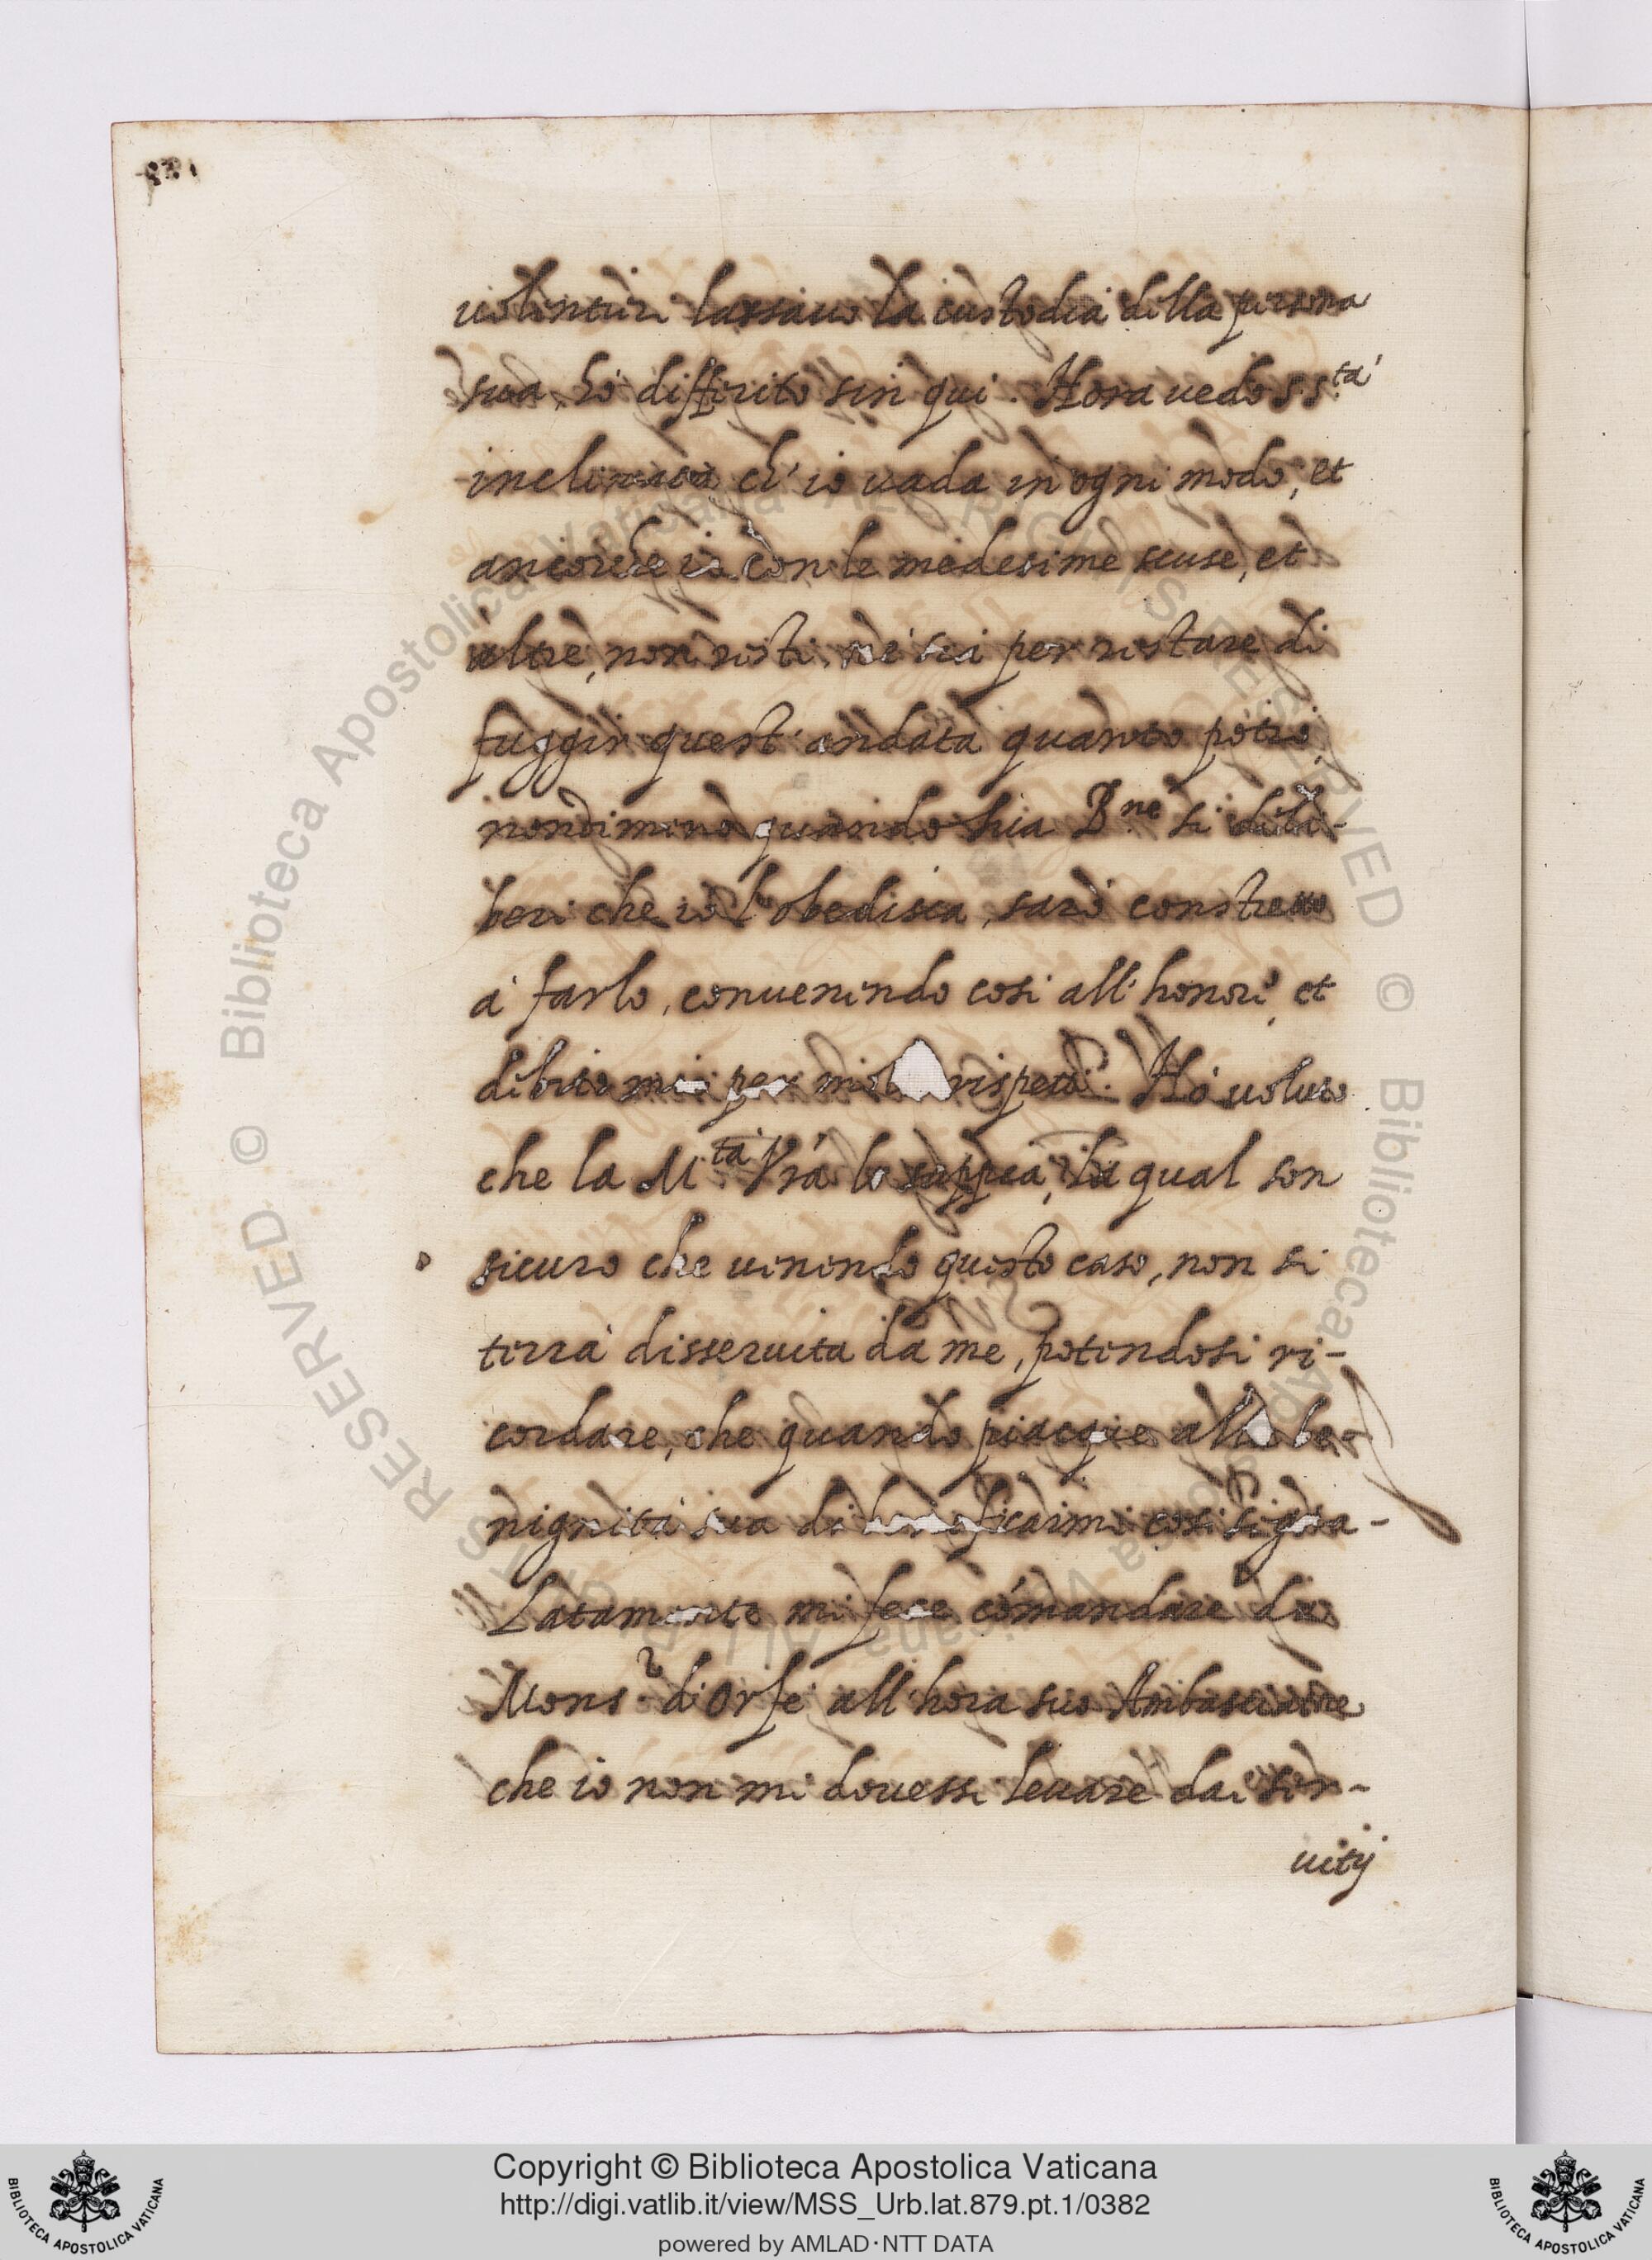 uolentieri lassauo la custodia della persona
sua, hò differito sin qui. Hora uedo S. S.tà
inclinata ch'io uada in ogni modo, et
ancorche io con le medesime scuse, et
altre, non resti, nè sia per restare di
fuggir quest'andata quanto potrò,
nondimeno quando sua B.ne si deli-
beri che io l'obedisca, sarò constretto
à farlo, conuenendo cosi all'honore, et
debito mio per molti rispetti. Hò uoluto
che la M.tà Vrã lo sappia, la qual son
sicuro che uenendo questo caso, non si
terrà disseruita da me, potendosi ri-
cordare, che quando piacque alla be-
nignità sua di beneficarmi cosi segna-
Latamente mi fece cómandare da
Mons.r d'Orfè all'hora suo Ambasciatore
che io non mi douessi leuare dai ser-
uitij
Copyright © Biblioteca Apostolica Vaticana
http://digi.vatlib.it/view/MSS_Urb.lat.879.pt.1/0382
powered by AMLAD·NTT DATA
BIBLIOTECA APOSTOLICA VATICANA
BIBLIOTECA APOSTOLICA VATICANA